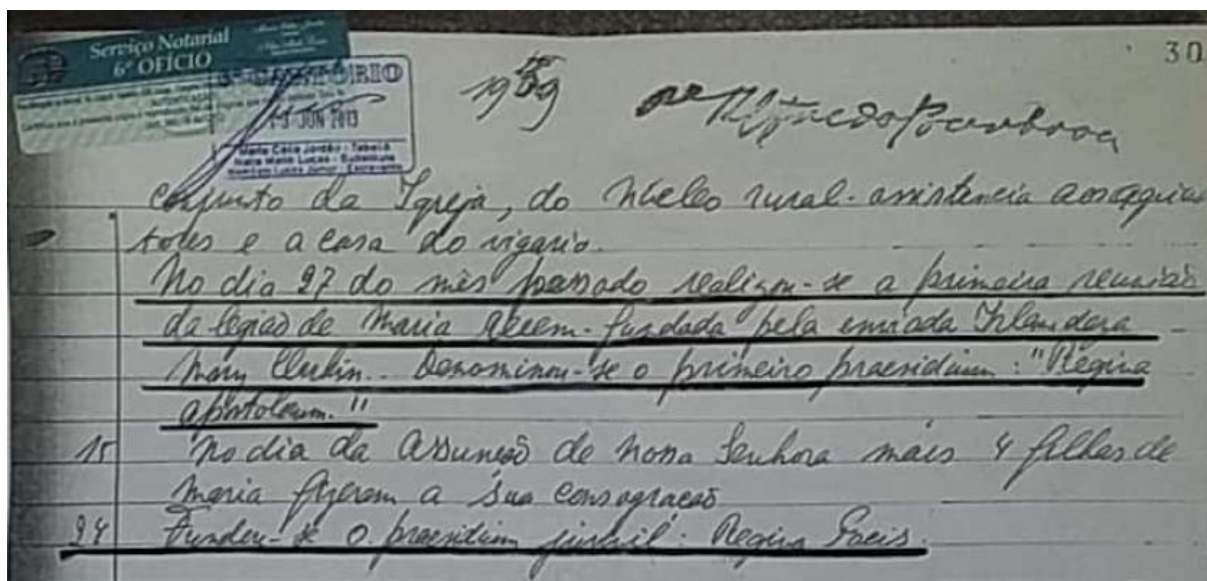 Serviço Notarial
6º OFÍCIO
CARTÓRIO
13 JUN 2013
Maria Célia Jordão - Tabeliã
30
1959
Pe Alfredo Barbosa
conjunto da Igreja, do núcleo rural - assistência aos agricul
tores e a casa do vigario.
No dia 27 do mês passado realizou-se a primeira reunião
da legião de Maria recem-fundada pela enviada Irlandeza
Mary Denominou-se o primeiro praesidium: "Regina
apostolorum."
15 No dia da Assunção de Nossa Senhora mais 4 filhas de
Maria fizeram a sua consagração
24 Fundou-se o praesidium juvenil: Regina Pacis.